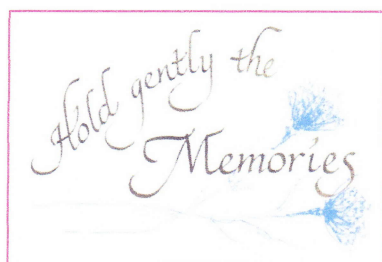 Hold gently the
Memories